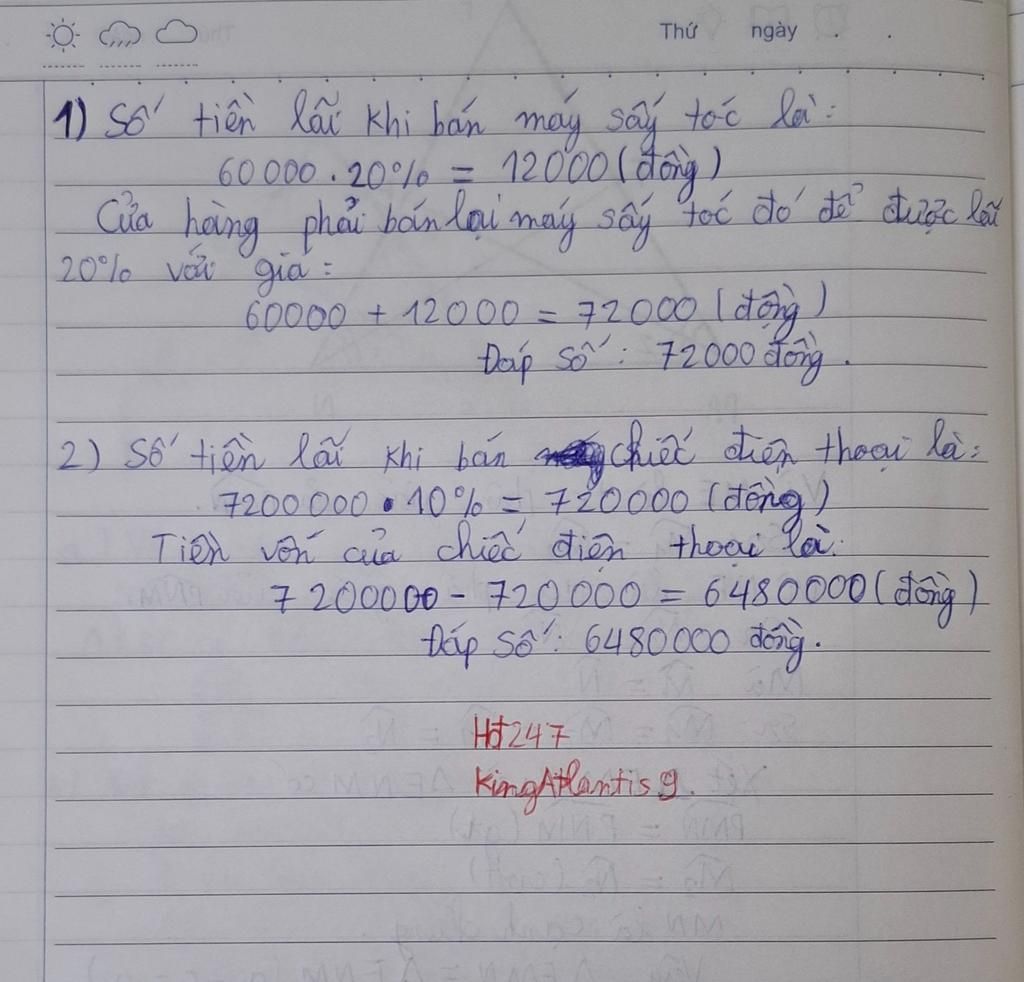 Thứ ngày . .
1) Số tiền lãi khi bán máy sấy tóc là:
60000 . 20% = 12000 (đồng)
Cửa hàng phải bán lại máy sấy tóc đó để được lãi
20% với giá:
60000 + 12000 = 72000 (đồng)
Đáp số: 72000 đồng.
2) Số tiền lãi khi bán chiếc điện thoại là:
7200000 . 10% = 720000 (đồng)
Tiền vốn của chiếc điện thoại là:
7200000 - 720000 = 6480000 (đồng)
Đáp số: 6480000 đồng.
Hđ247
KingAtlantis9.